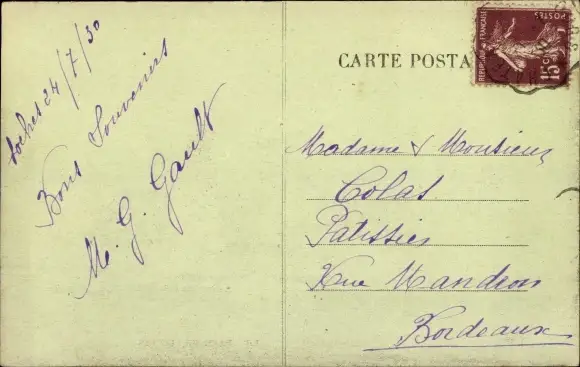 Loches 24/7/30
Bons Souvenirs
M. G. Gault
CARTE POSTA
RÉPUBLIQUE FRANÇAISE
POSTES
15c
Madame & Monsieur
Colas
Patissier
Rue Mandron
Bordeaux